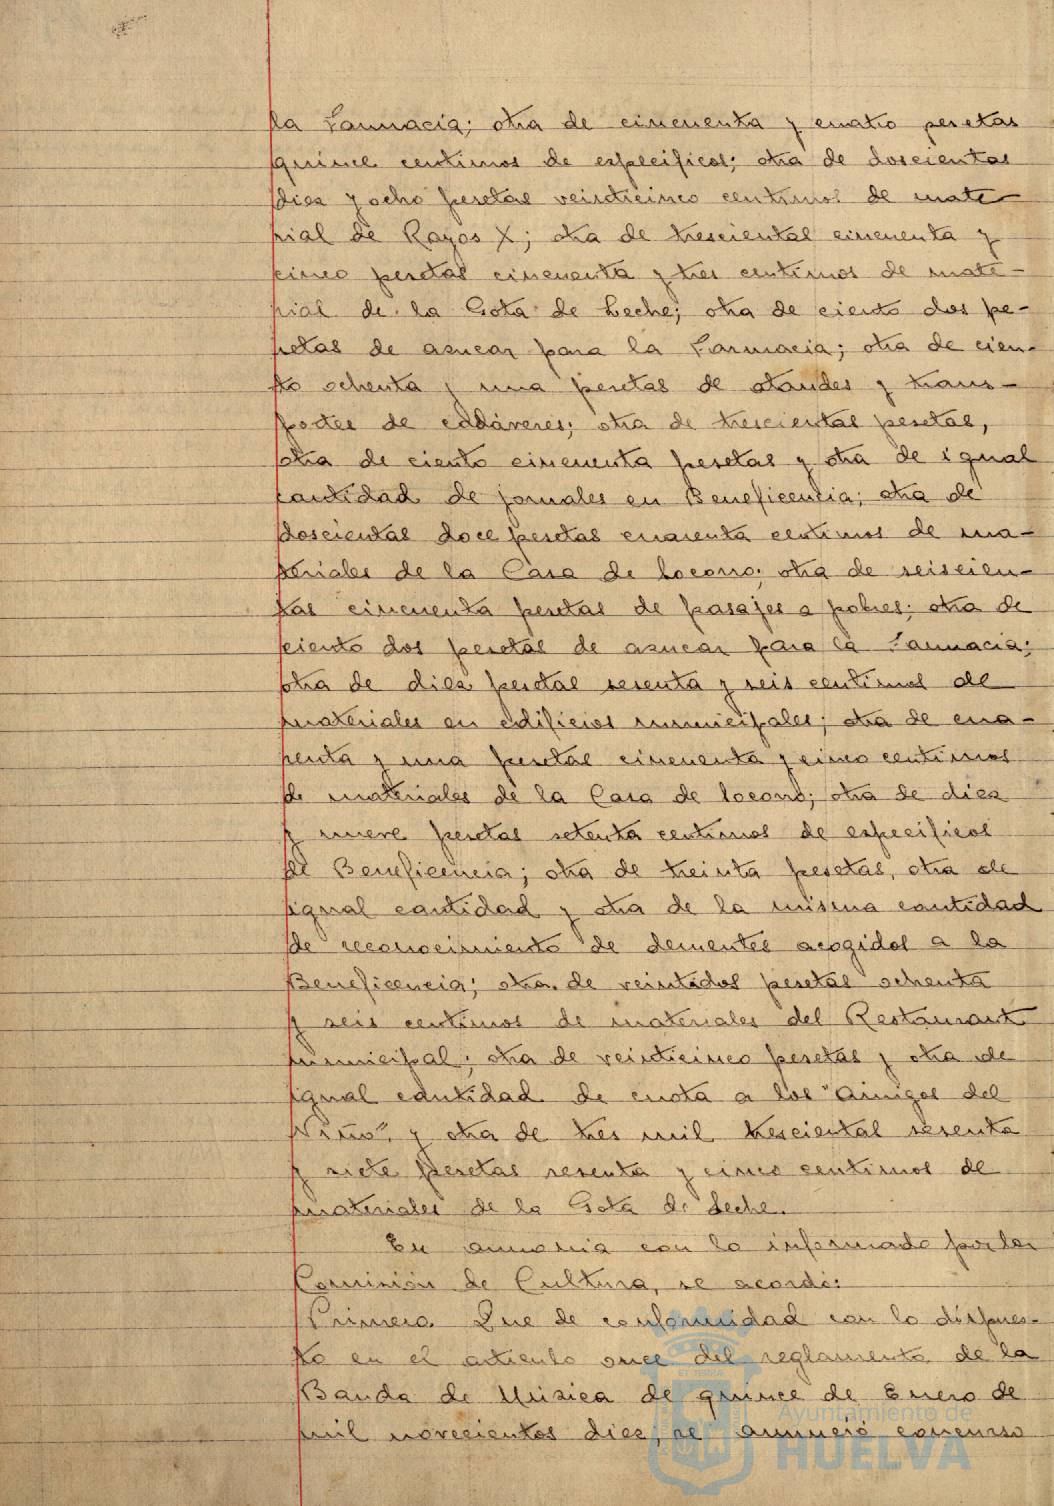 la Farmacia; otra de cincuenta y cuatro pesetas
quince centimos de especificos; otra de doscientas
diez y ocho pesetas veinticinco centimos de mate-
rial de Rayos X; otra de trescientas cincuenta y
cinco pesetas cincuenta y tres centimos de mate-
rial de la Gota de Leche; otra de ciento dos pe-
setas de azucar para la Farmacia; otra de cien-
to ochenta y una pesetas de ataudes y trans-
portes de cadáveres; otra de trescientas pesetas,
otra de ciento cincuenta pesetas y otra de igual
cantidad de jornales en Beneficencia; otra de
doscientas doce pesetas cuarenta centimos de ma-
teriales de la Casa de Socorro; otra de seiscien-
tas cincuenta pesetas de pasajes a pobres; otra de
ciento dos pesetas de azucar para la Farmacia;
otra de diez pesetas sesenta y seis centimos de
materiales en edificios municipales; otra de cua-
renta y una pesetas cincuenta y cinco centimos
de materiales de la Casa de Socorro; otra de diez
y nueve pesetas setenta centimos de especificos
de Beneficencia; otra de treinta pesetas, otra de
igual cantidad y otra de la misma cantidad
de reconocimiento de dementes acogidos a la
Beneficencia; otra de veintidos pesetas ochenta
y seis centimos de materiales del Restaurant
municipal; otra de veinticinco pesetas y otra de
igual cantidad de cuota a los "Amigos del
Niño", y otra de tres mil trescientas sesenta
y siete pesetas sesenta y cinco centimos de
materiales de la Gota de Leche.
En armonia con lo informado por la
Comisión de Cultura, se acordó:
Primero. Que de conformidad con lo dispues-
to en el articulo once del reglamento de la
Banda de Música de quince de Enero de
mil novecientos diez, se anuncie concurso
Ayuntamiento de
HUELVA